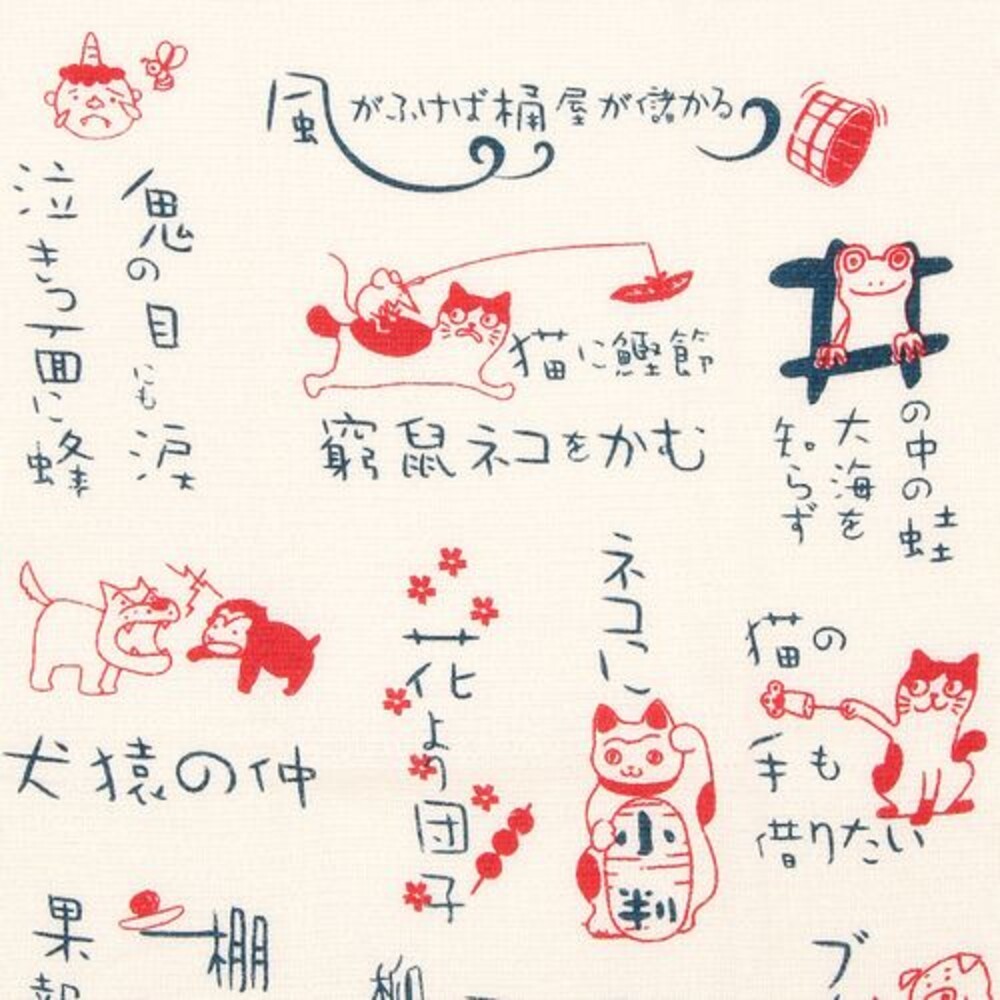 風がふけば桶屋が儲かる
鬼の目にも涙
泣きっ面に蜂
猫に鰹節
窮鼠ネコをかむ
の中の蛙
大海を
知らず
犬猿の仲
花より団子
ネコに
小判
猫の
手も
借りたい
棚
果報
柳
ブ